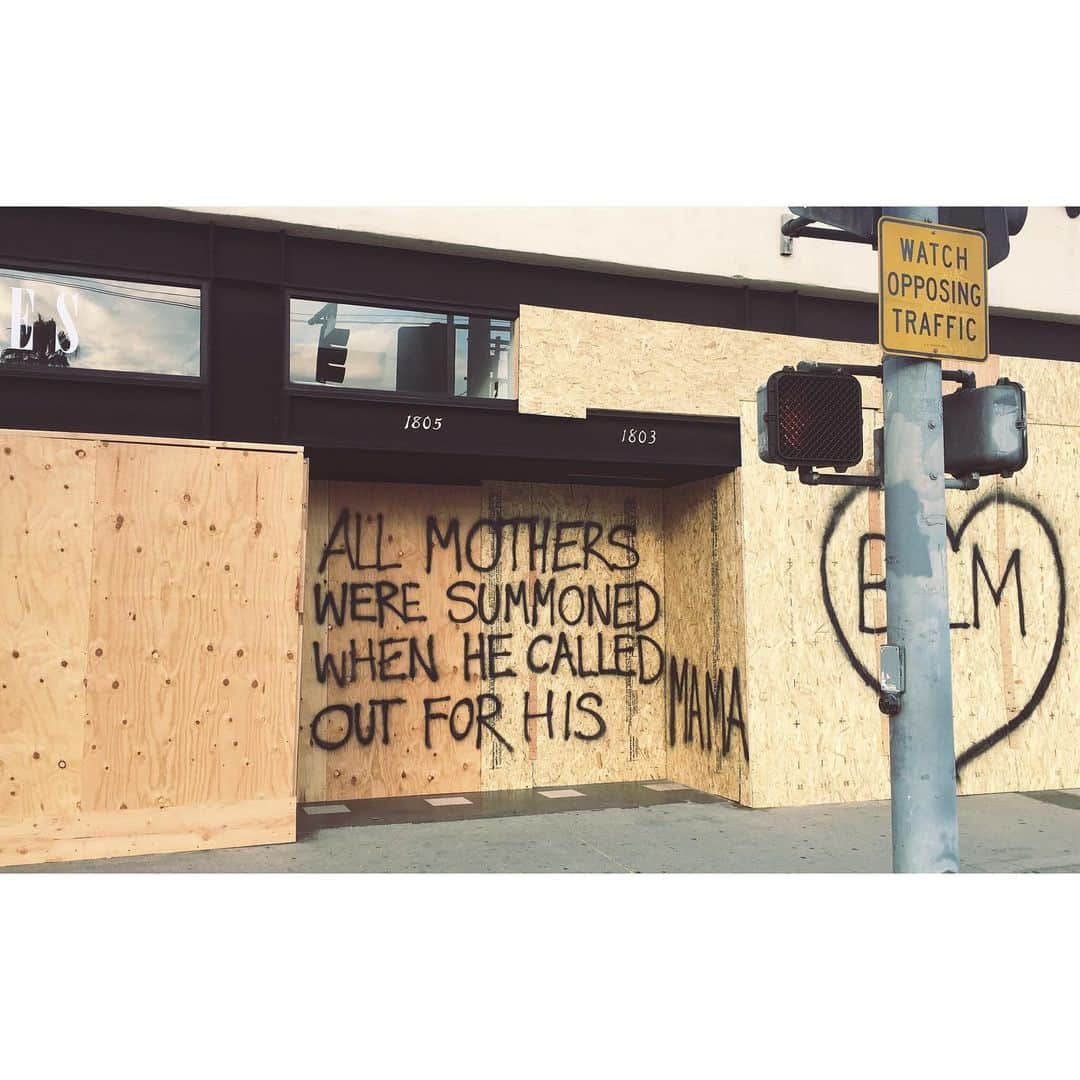 WATCH
OPPOSING
TRAFFIC
ES
1805
1803
ALL MOTHERS
WERE SUMMONED
WHEN HE CALLED
OUT FOR HIS MAMA
BLM